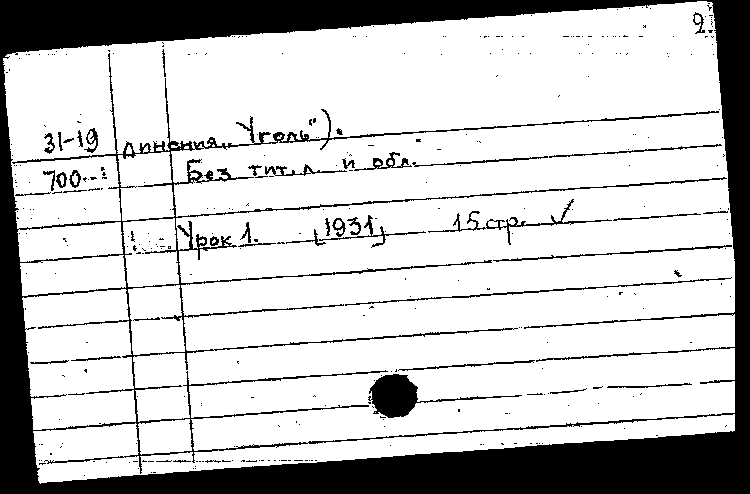 2.
31-19 динения „Уголь").
700 Без тит. л. и обл.
Урок 1. [1931] 15 стр. ✓